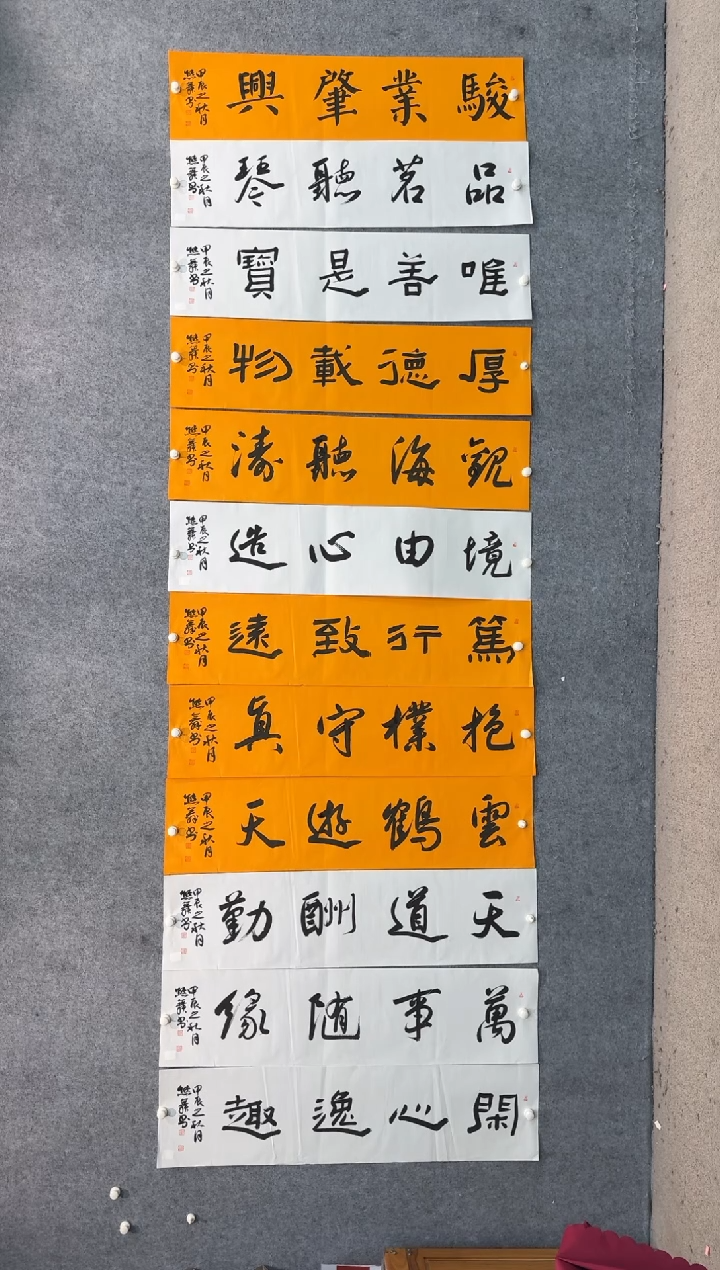 駿業肇興
甲辰之秋月
品茗聽琴
甲辰之秋月
唯善是寶
甲辰之秋月
厚德載物
甲辰之秋月
觀海聽濤
甲辰之秋月
境由心造
甲辰之秋月
篤行致遠
甲辰之秋月
抱樸守真
甲辰之秋月
雲鶴遊天
甲辰之秋月
天道酬勤
甲辰之秋月
萬事随緣
甲辰之秋月
閑心逸趣
甲辰之秋月